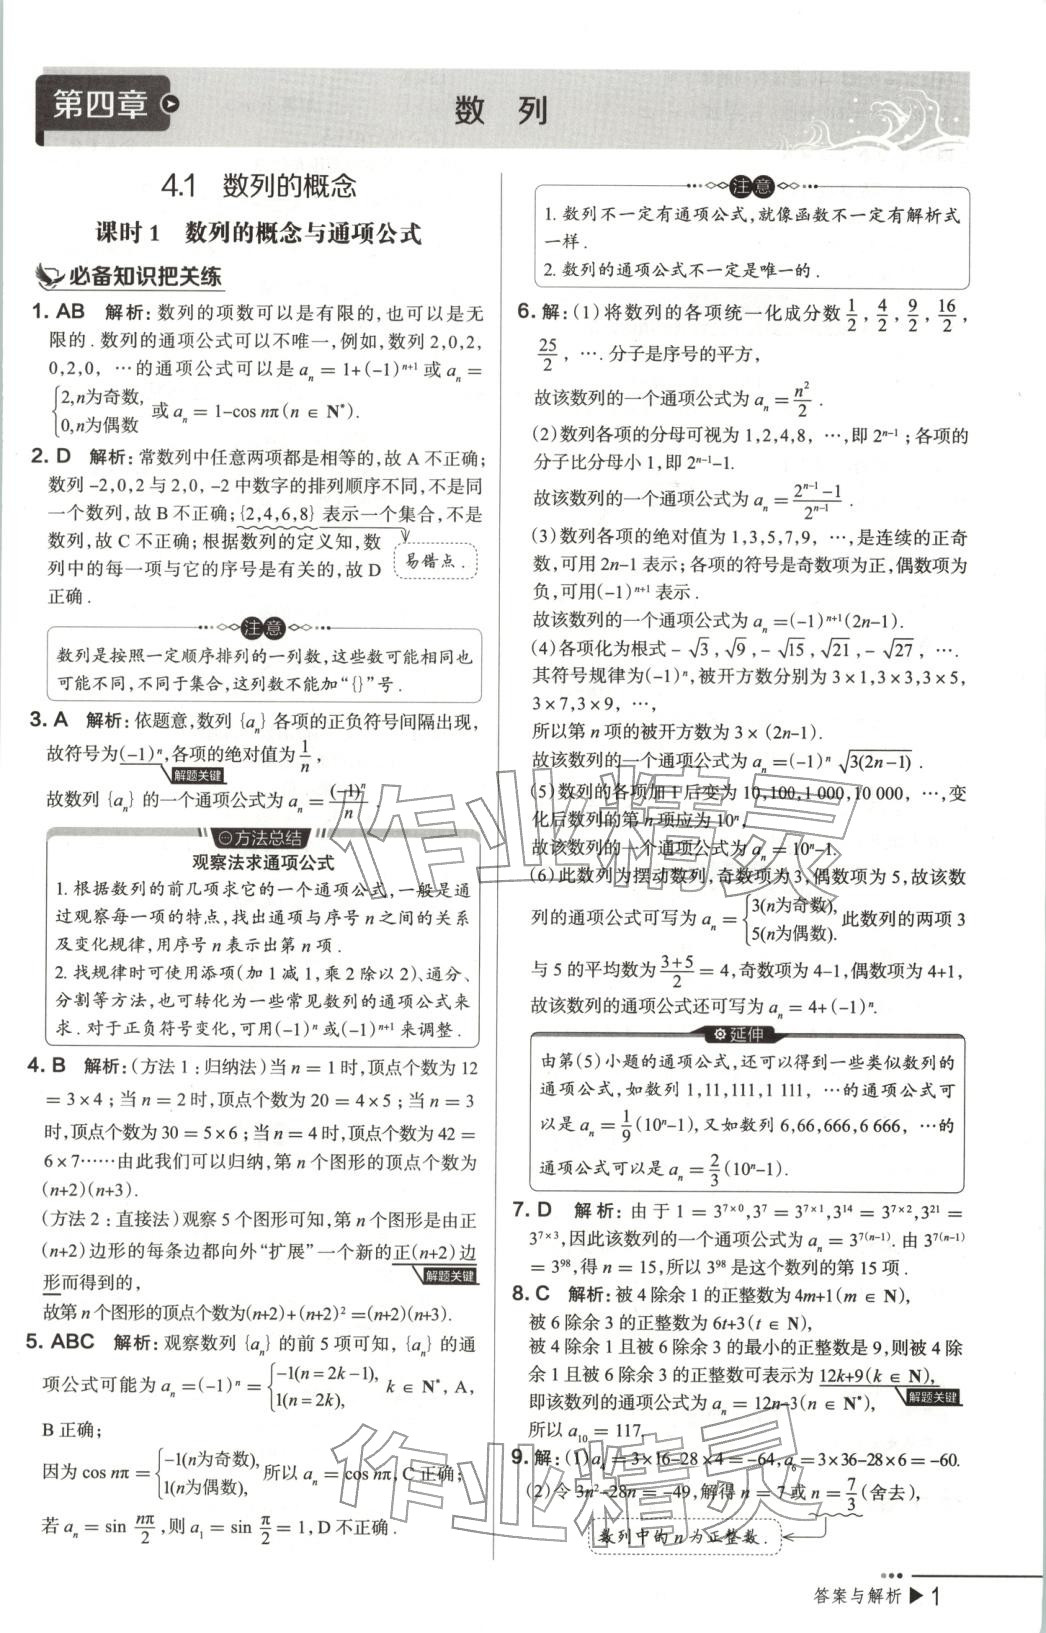 第四章
数 列
4.1 数列的概念
课时1 数列的概念与通项公式
必备知识把关练
1. AB 解析:数列的项数可以是有限的,也可以是无
限的.数列的通项公式可以不唯一,例如,数列2,0,2,
0,2,0,…的通项公式可以是aₙ=1+(-1)ⁿ⁺¹或aₙ=
{2,n为奇数,
0,n为偶数 或aₙ=1-cos nπ(n∈N*).
2. D 解析:常数列中任意两项都是相等的,故A不正确;
数列-2,0,2与2,0,-2中数字的排列顺序不同,不是同
一个数列,故B不正确;{2,4,6,8}表示一个集合,不是
数列,故C不正确;根据数列的定义知,数
列中的每一项与它的序号是有关的,故D
正确.
易错点.
注意
数列是按照一定顺序排列的一列数,这些数可能相同也
可能不同,不同于集合,这列数不能加“{}”号.
3. A 解析:依题意,数列{aₙ}各项的正负符号间隔出现,
故符号为(-1)ⁿ,各项的绝对值为1/n,
解题关键
故数列{aₙ}的一个通项公式为aₙ=(-1)ⁿ/n
方法总结
观察法求通项公式
1.根据数列的前几项求它的一个通项公式,一般是通
过观察每一项的特点,找出通项与序号n之间的关系
及变化规律,用序号n表示出第n项.
2.找规律时可使用添项(加1减1,乘2除以2)、通分、
分割等方法,也可转化为一些常见数列的通项公式来
求.对于正负符号变化,可用(-1)ⁿ或(-1)ⁿ⁺¹来调整.
4. B 解析:(方法1:归纳法)当n=1时,顶点个数为12
=3×4;当n=2时,顶点个数为20=4×5;当n=3
时,顶点个数为30=5×6;当n=4时,顶点个数为42=
6×7……由此我们可以归纳,第n个图形的顶点个数为
(n+2)(n+3).
(方法2:直接法)观察5个图形可知,第n个图形是由正
(n+2)边形的每条边都向外“扩展”一个新的正(n+2)边
形而得到的,
解题关键
故第n个图形的顶点个数为(n+2)+(n+2)²=(n+2)(n+3).
5. ABC 解析:观察数列{aₙ}的前5项可知,{aₙ}的通
项公式可能为aₙ=(-1)ⁿ={-1(n=2k-1),
1(n=2k), k∈N*,A,
B正确;
因为cos nπ={-1(n为奇数),
1(n为偶数), 所以aₙ=cos nπ,C正确;
若aₙ=sin nπ/2,则a₁=sin π/2=1,D不正确.
注意
1.数列不一定有通项公式,就像函数不一定有解析式
一样.
2.数列的通项公式不一定是唯一的.
6. 解:(1)将数列的各项统一化成分数1/2,4/2,9/2,16/2,
25/2,….分子是序号的平方,
故该数列的一个通项公式为aₙ=n²/2.
(2)数列各项的分母可视为1,2,4,8,…,即2ⁿ⁻¹;各项的
分子比分母小1,即2ⁿ⁻¹-1.
故该数列的一个通项公式为aₙ=(2ⁿ⁻¹-1)/2ⁿ⁻¹.
(3)数列各项的绝对值为1,3,5,7,9,…,是连续的正奇
数,可用2n-1表示;各项的符号是奇数项为正,偶数项为
负,可用(-1)ⁿ⁺¹表示.
故该数列的一个通项公式为aₙ=(-1)ⁿ⁺¹(2n-1).
(4)各项化为根式-√3,√9,-√15,√21,-√27,….
其符号规律为(-1)ⁿ,被开方数分别为3×1,3×3,3×5,
3×7,3×9,…,
所以第n项的被开方数为3×(2n-1).
故该数列的一个通项公式为aₙ=(-1)ⁿ√3(2n-1).
(5)数列的各项加1后变为10,100,1 000,10 000,…,变
化后数列的第n项应为10ⁿ,
故该数列的一个通项公式为aₙ=10ⁿ-1.
(6)此数列为摆动数列,奇数项为3,偶数项为5,故该数
列的通项公式可写为aₙ={3(n为奇数),
5(n为偶数). 此数列的两项3
与5的平均数为(3+5)/2=4,奇数项为4-1,偶数项为4+1,
故该数列的通项公式还可写为aₙ=4+(-1)ⁿ.
延伸
由第(5)小题的通项公式,还可以得到一些类似数列的
通项公式,如数列1,11,111,1 111,…的通项公式可
以是aₙ=1/9(10ⁿ-1),又如数列6,66,666,6 666,…的
通项公式可以是aₙ=2/3(10ⁿ-1).
7. D 解析:由于1=3⁷ˣ⁰,3⁷=3⁷ˣ¹,3¹⁴=3⁷ˣ²,3²¹=
3⁷ˣ³,因此该数列的一个通项公式为aₙ=3⁷⁽ⁿ⁻¹⁾.由3⁷⁽ⁿ⁻¹⁾
=3⁹⁸,得n=15,所以3⁹⁸是这个数列的第15项.
8. C 解析:被4除余1的正整数为4m+1(m∈N),
被6除余3的正整数为6t+3(t∈N),
被4除余1且被6除余3的最小的正整数是9,则被4除
余1且被6除余3的正整数可表示为12k+9(k∈N),
即该数列的通项公式为aₙ=12n-3(n∈N*),
解题关键
所以a₁₀=117,
9. 解:(1)a₄=3×16-28×4=-64,a₆=3×36-28×6=-60.
(2)令3n²-28n=-49,解得n=7或n=7/3(舍去),
数列中的n为正整数.
作业精灵
作业精灵
答案与解析▶1